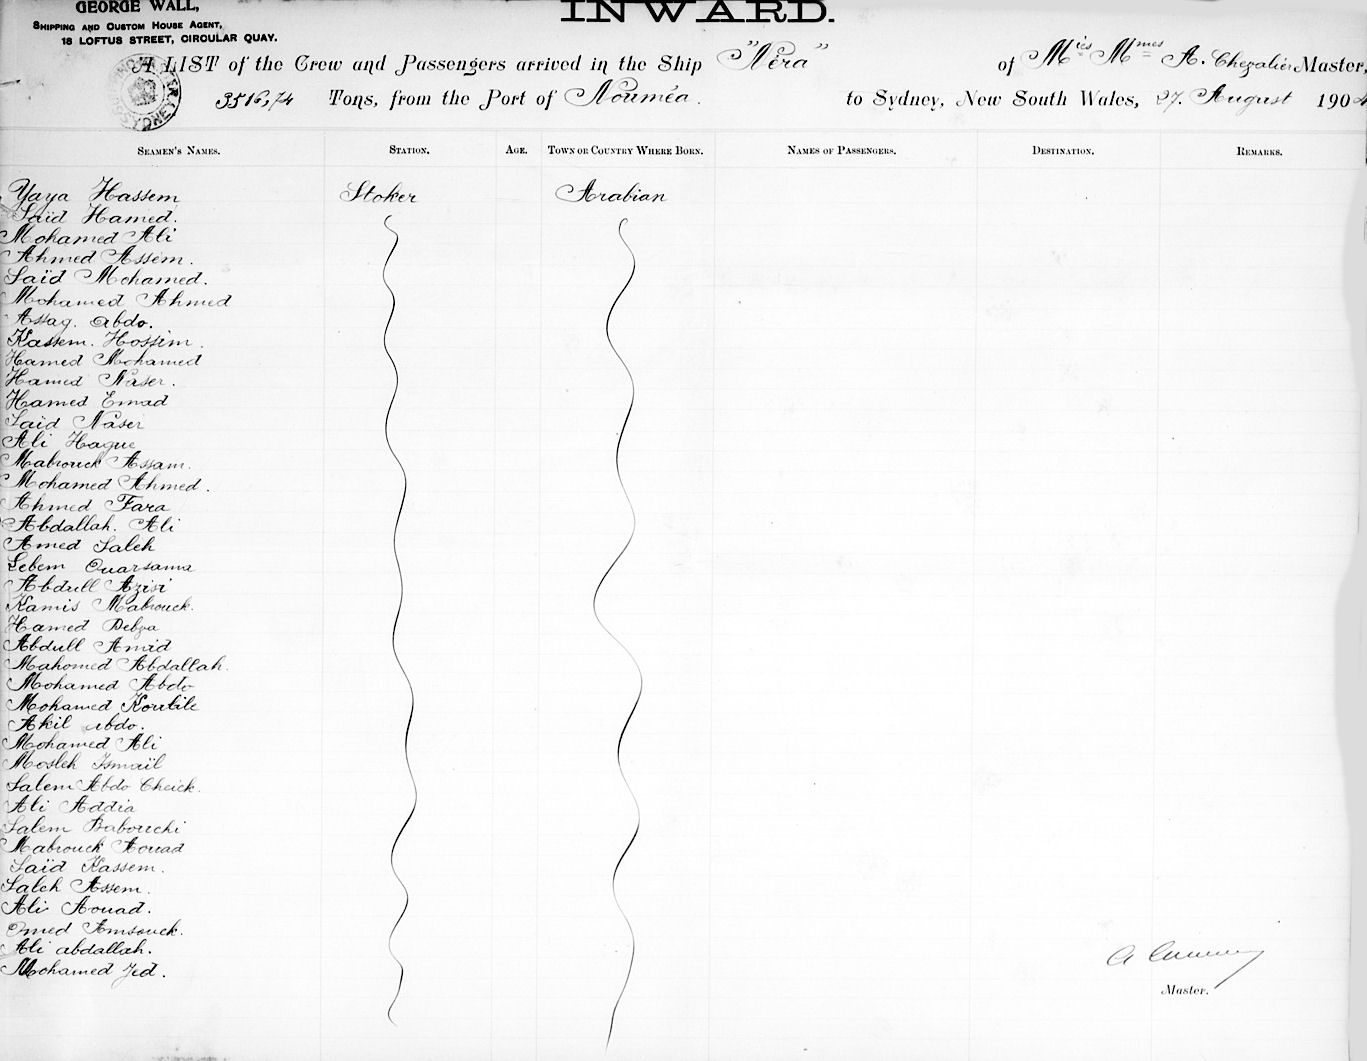 GEORGE WALL,
SHIPPING AND CUSTOM HOUSE AGENT,
18 LOFTUS STREET, CIRCULAR QUAY.
INWARD.
A LIST of the Crew and Passengers arrived in the Ship "Néra" of Mies Mmes A. Chevalier Master,
3516,74 Tons, from the Port of Nouméa. to Sydney, New South Wales, 27. August 1904
SEAMEN'S NAMES. STATION. AGE. TOWN OR COUNTRY WHERE BORN. NAMES OF PASSENGERS. DESTINATION. REMARKS.
Yaya Hassem Stoker Arabian
Saïd Hamed.
Mohamed Ali
Ahmed Assem.
Saïd Mohamed.
Mohamed Ahmed
Assag. abdo.
Kassem. Hossim.
Hamed Mohamed
Hamed Naser.
Hamed Emad
Saïd Naser
Ali Hague
Mabrouck Assam.
Mohamed Ahmed.
Ahmed Fara
Abdallah. Ali
Amed Saleh
Lebem Ouarsama
Abdull Azisi
Kamis Mabrouck.
Hamed Debya
Abdull Amid
Mahomed Abdallah.
Mohamed Abdo
Mohamed Koubile
Akil abdo.
Mohamed Ali
Mosleh Ismaïl
Salem Abdo Cheick.
Ali Addia
Salem Babouchi
Mabrouck Aouad
Saïd Kassem.
Saleh Assem.
Ali Aouad.
Omed Amsouck.
Ali abdallah.
Mohamed Zed.
Master.